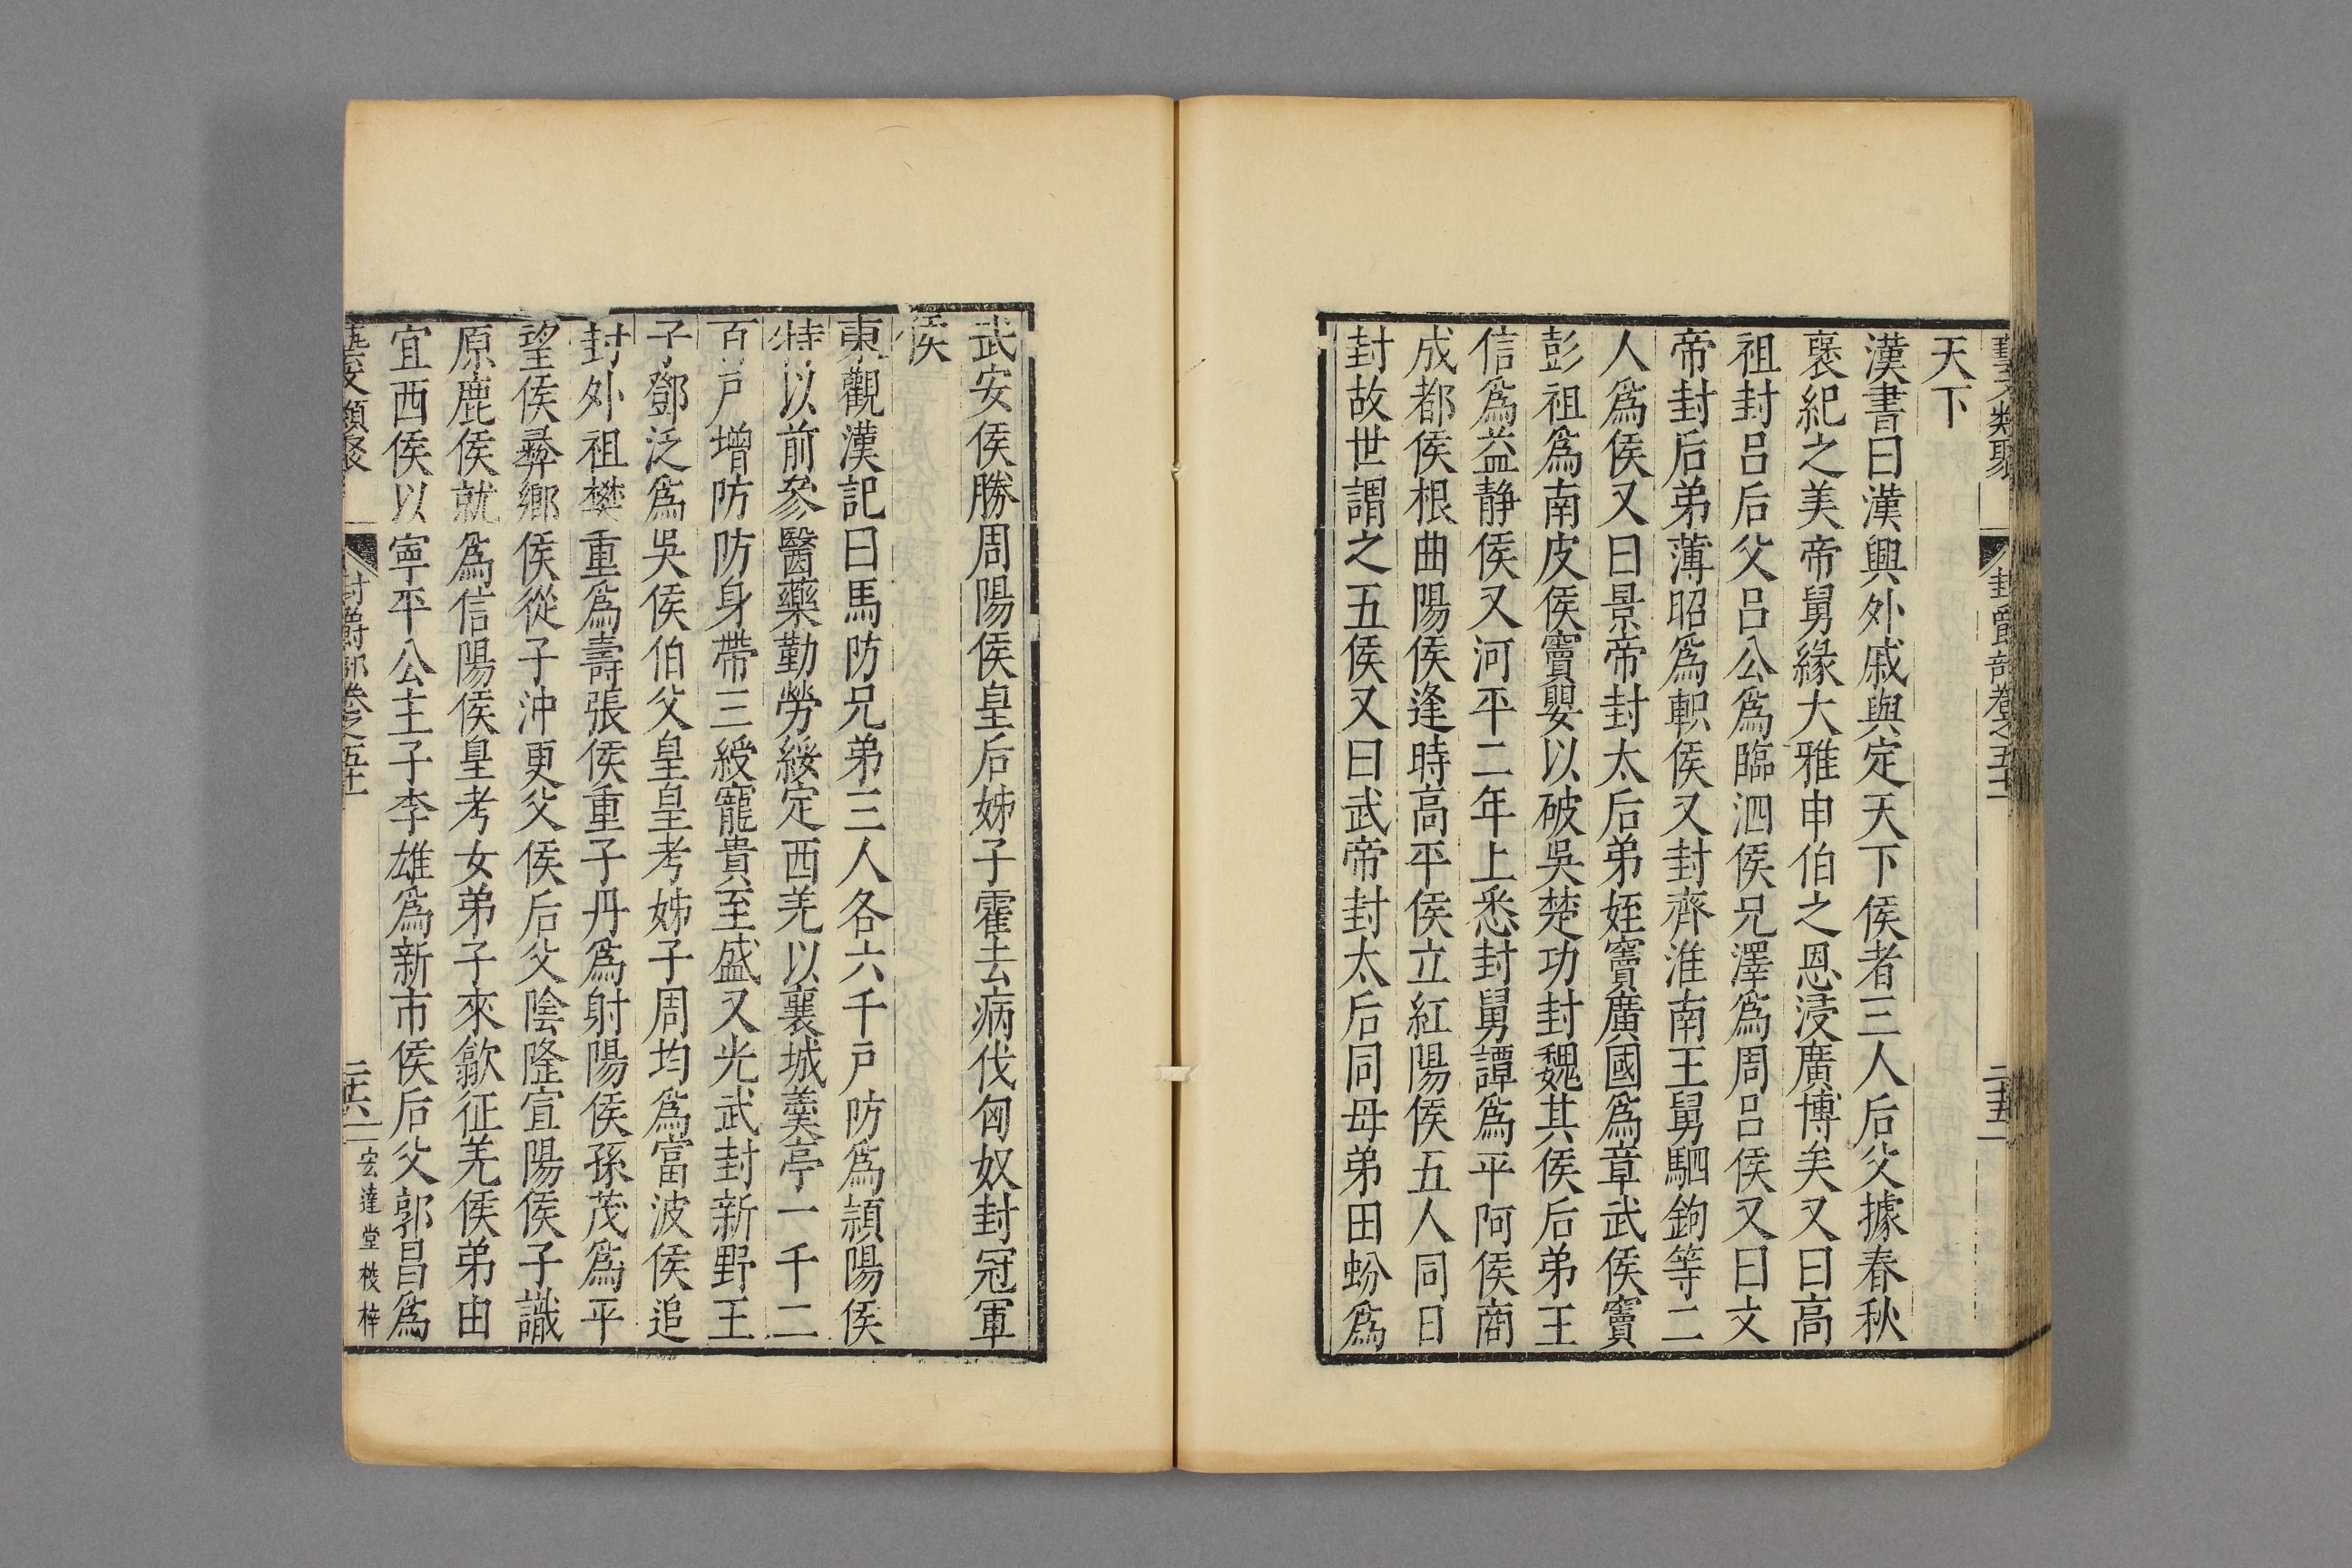 藝文類聚 封爵部卷之五十一 二十五
天下
漢書曰漢興外戚與定天下侯者三人后父據春秋
褒紀之美帝舅緣大雅申伯之恩浸廣博矣又曰高
祖封吕后父吕公爲臨泗侯兄澤爲周吕侯又曰文
帝封后弟薄昭爲軹侯又封齊淮南王舅駟鉤等二
人爲侯又曰景帝封太后弟姪竇廣國爲章武侯竇
彭祖爲南皮侯竇嬰以破吳楚功封魏其侯后弟王
信爲益静侯又河平二年上悉封舅譚爲平阿侯商
成都侯根曲陽侯逢時高平侯立紅陽侯五人同日
封故世謂之五侯又曰武帝封太后同母弟田蚡爲
武安侯勝周陽侯皇后姊子霍去病伐匈奴封冠軍
侯
東觀漢記曰馬防兄弟三人各六千戸防爲潁陽侯
特以前參醫藥勤勞綏定西羌以襄城羹亭一千二
百戸增防防身帶三綬寵貴至盛又光武封新野王
子鄧泛爲吳侯伯父皇皇考姊子周均爲富波侯追
封外祖樊重爲壽張侯重子丹爲射陽侯孫茂爲平
望侯彞鄉侯從子沖更父侯后父陰隆宣陽侯子識
原鹿侯就爲信陽侯皇考女弟子來歙征羌侯弟由
宜西侯以寧平公主子李雄爲新市侯后父郭昌爲
藝文類聚 封爵部卷之五十一 二十六 宏達堂校梓